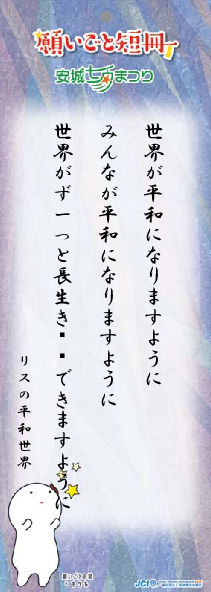 願いごと短冊
安城七夕まつり
世界が平和になりますように
みんなが平和になりますように
世界がずーっと長生き・・できますように
リスの平和世界
願いごと短冊
JCI